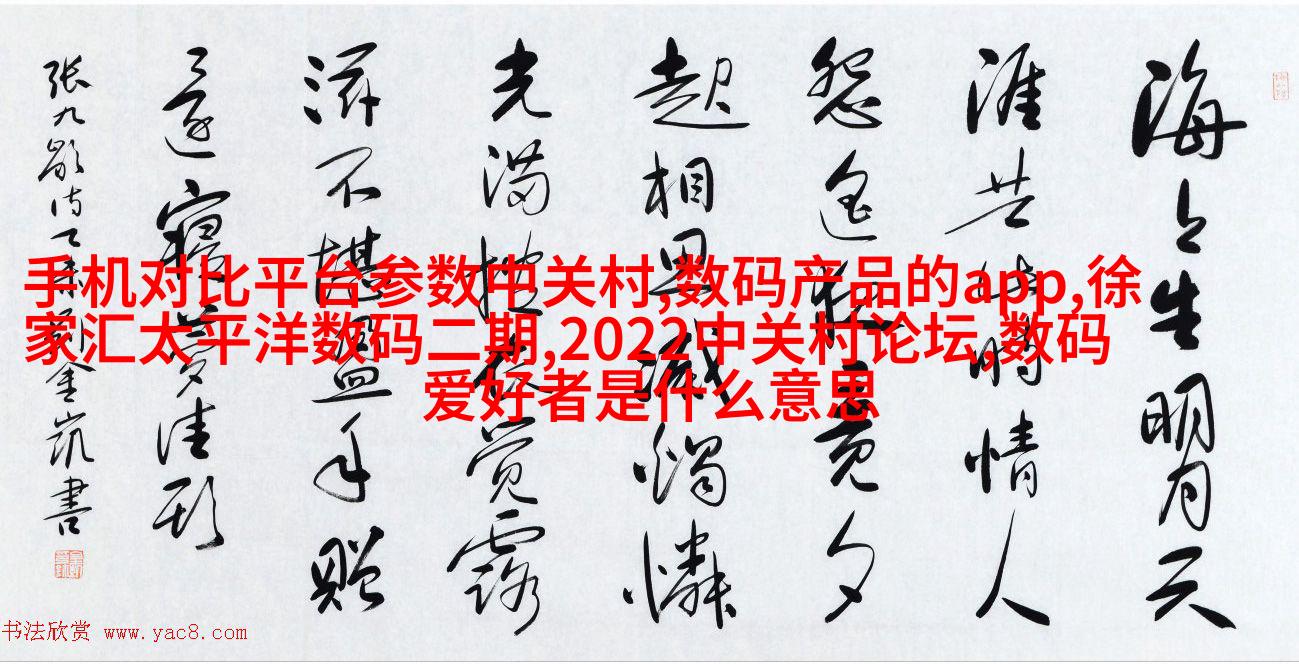 海上生明月天
涯共此時情人
怨遥夜竟夕
起相思滅燭憐
光满披衣觉露
滋不堪盈手贈
還寝夢佳期
张九龄诗 金凯書
手机对比平台参数中关村,数码产品的app,徐
家汇太平洋数码二期,2022中关村论坛,数码
爱好者是什么意思
书法欣赏 www.yac8.com